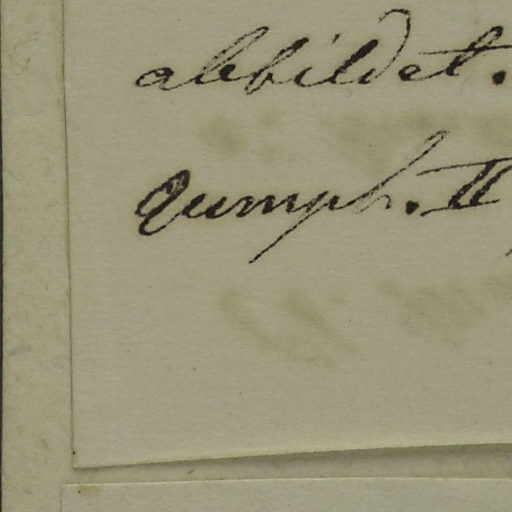 abbildet.
Rumph. II